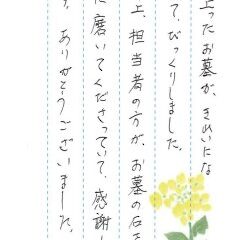 上ったお墓が、きれいにな
て、びっくりしました。
上、担当者の方が、お墓の石を
に磨いてくださっていて、感謝し
す。ありがとうございました。